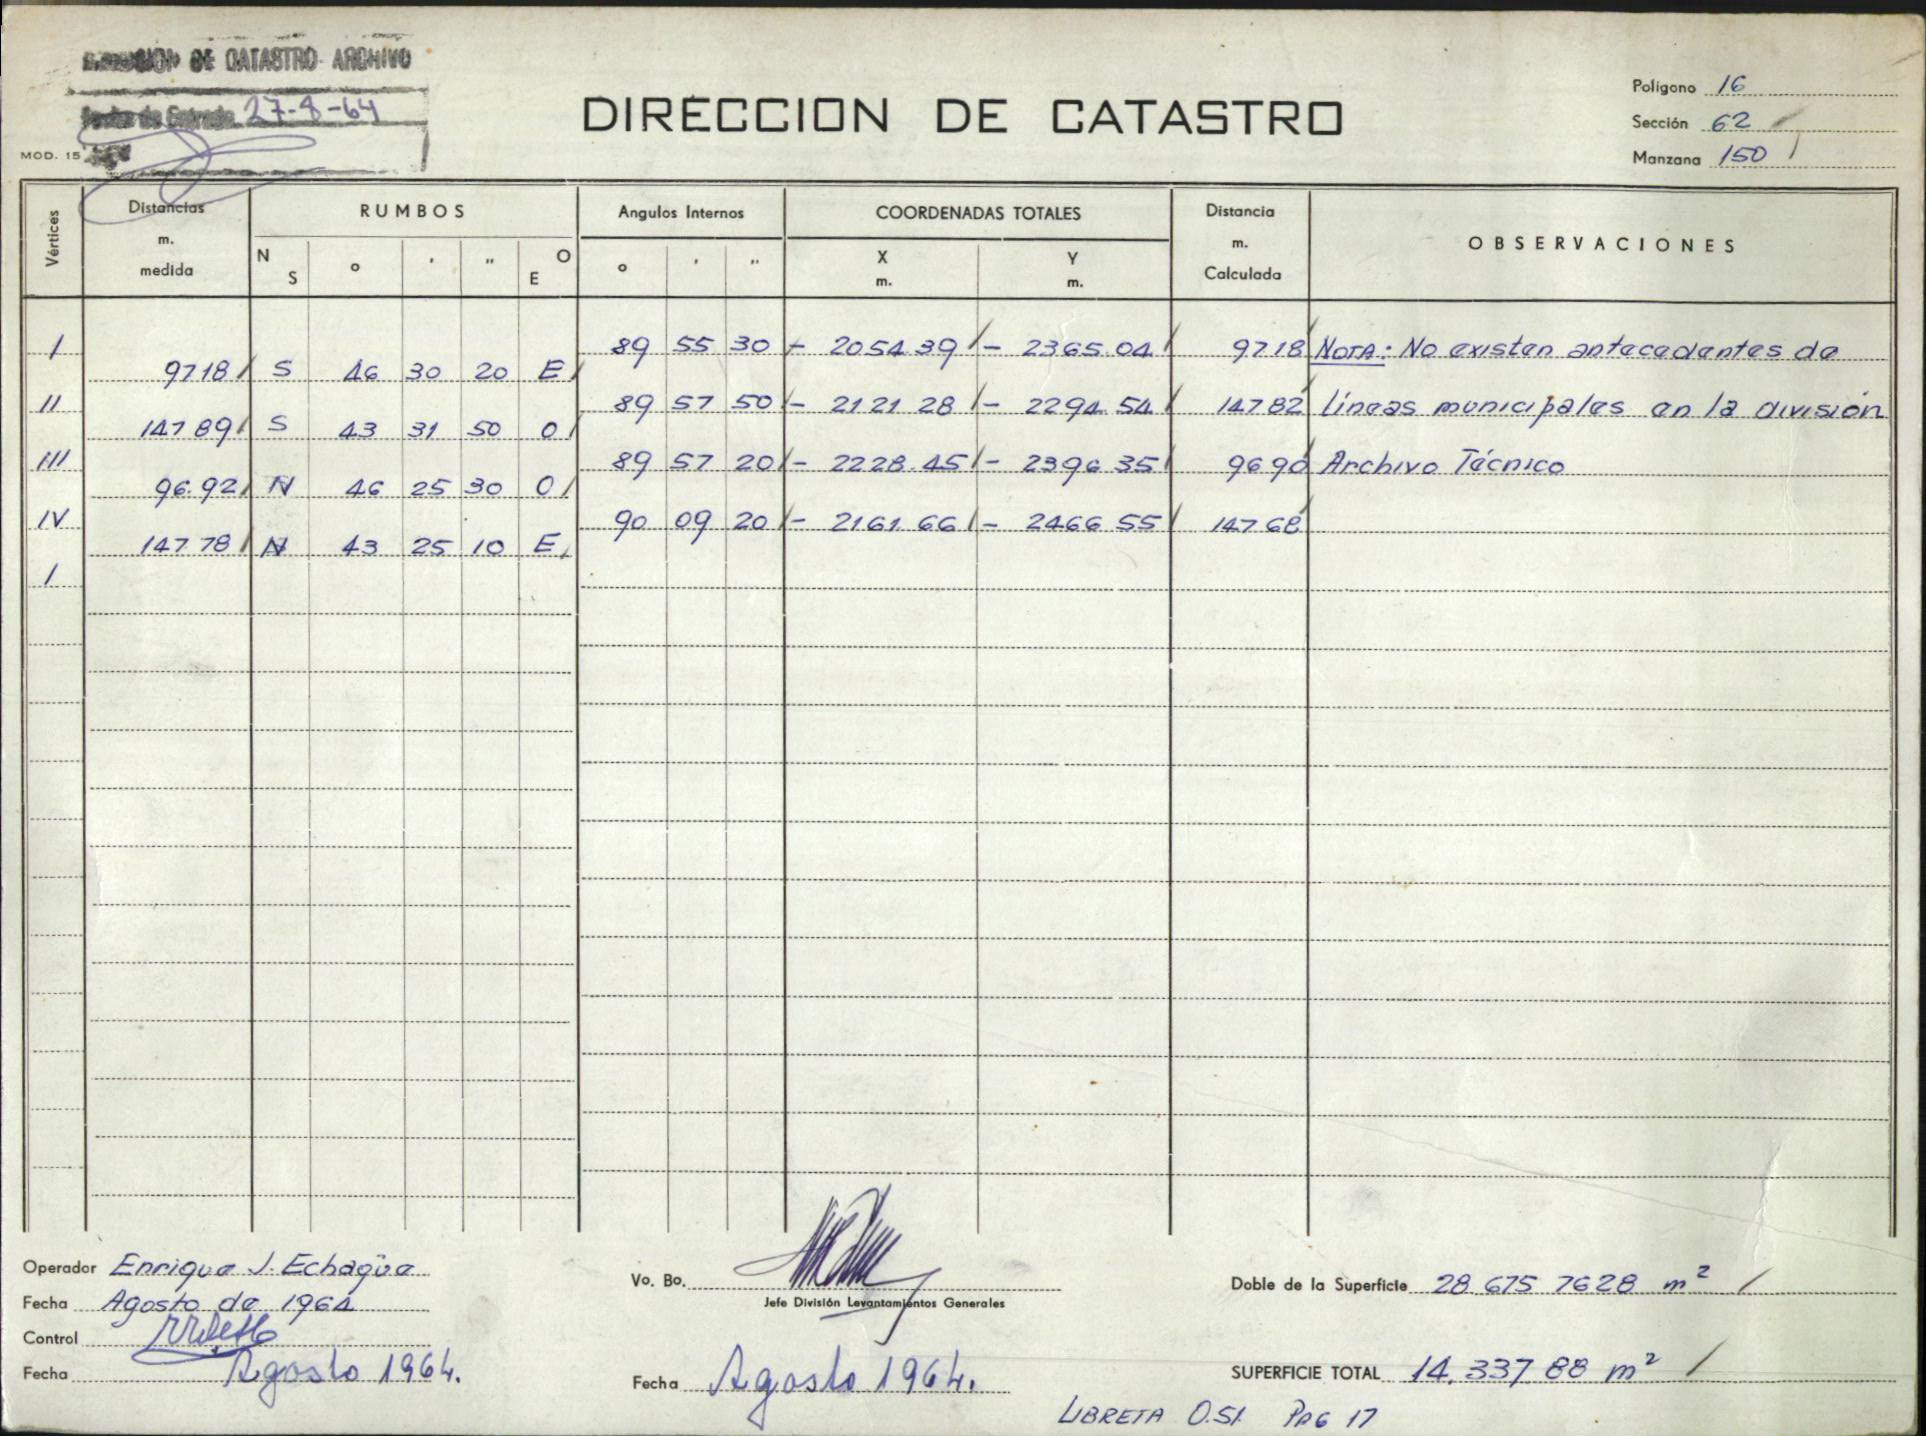 DIRECCION DE CATASTRO ARCHIVO
Fecha de Entrada 27-8-64
MOD. 15
DIRECCION DE CATASTRO
Polígono 16
Sección 62
Manzana 150
Vértices
Distancias m. medida
RUMBOS
N S ° ' " O E
Angulos Internos
° ' "
COORDENADAS TOTALES
X m. Y m.
Distancia m. Calculada
OBSERVACIONES
I 89 55 30 - 2054.39 - 2365.04 97.18 NOTA: No existen antecedentes de
97.18 S 46 30 20 E
II 89 57 50 - 2121 28 - 2294.54 147 82 líneas municipales en la división
147 89 S 43 31 50 O
III 89 57 20 - 2228.45 - 2396 35 96 90 Archivo Técnico
96.92 N 46 25 30 O
IV 90 09 20 - 2161.66 - 2466 55 147 68
147 78 N 43 25 10 E
I
Operador Enrique J. Echagüe
Fecha Agosto de 1964
Control
Fecha Agosto 1964.
Vo. Bo.
Jefe División Levantamientos Generales
Fecha Agosto 1964.
Doble de la Superficie 28.675 7628 m²
SUPERFICIE TOTAL 14.337 88 m²
LIBRETA O.51 PAG 17